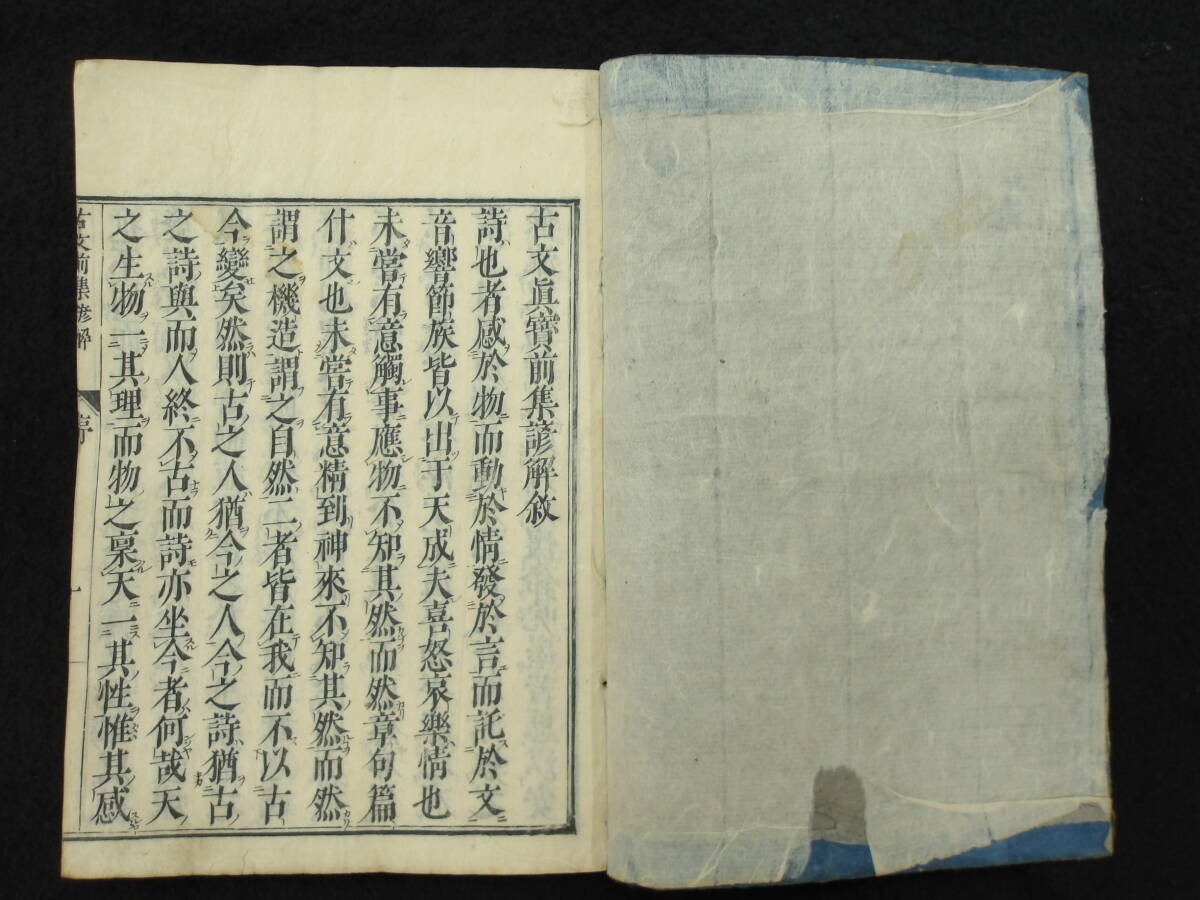 古文眞寶前集諺解敘
詩也者感於物而動於情發於言而託於文
音響節族皆以出于天成夫喜怒哀樂情也
未嘗有意觸事應物不知其然而然章句篇
什文也未嘗有意精到神來不知其然而然
謂之機造謂之自然二者皆在我而不以古
今變矣然則古之人猶今之人今之詩猶古
之詩與而人終不古而詩亦坐今者何哉天
之生物一其理而物之稟天一其性惟其感
古文前集諺解 序 一